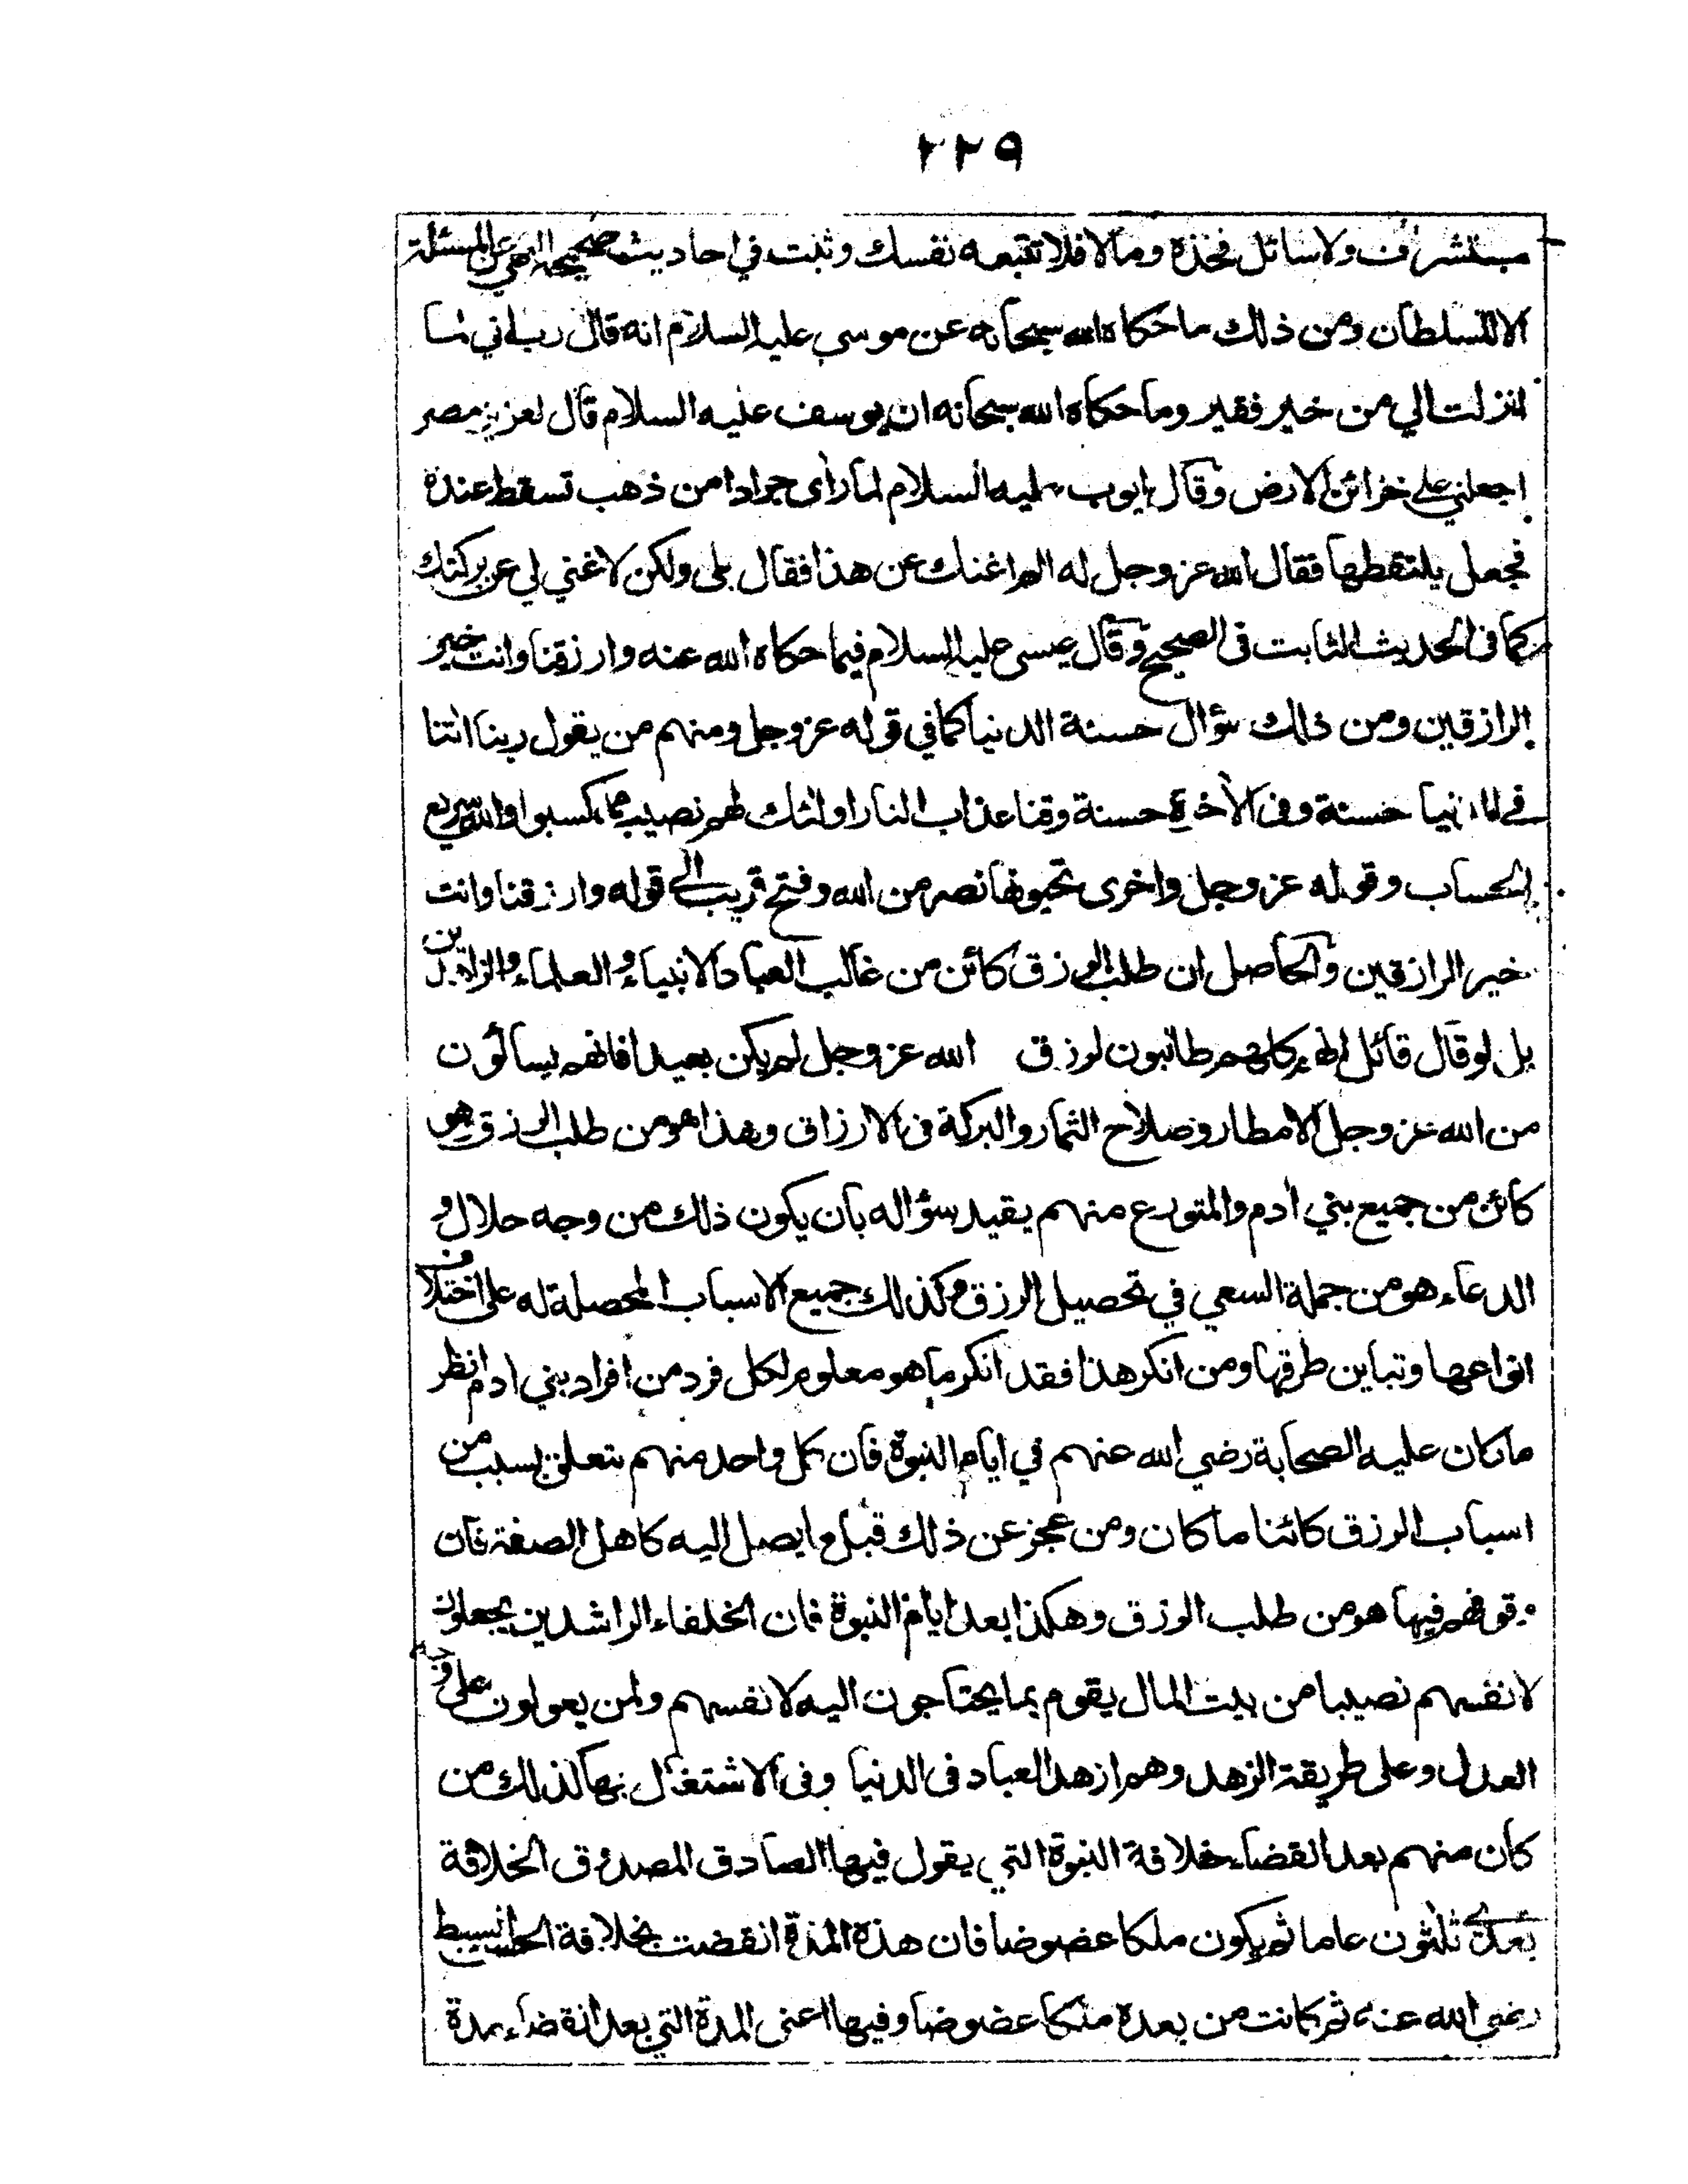 ٢٢٩
مستشرف ولا سائل فخذه ومالا فلا تتبعه نفسك وثبت في احاديث صحيحة النهي عن المسئلة
الا للسلطان ومن ذلك ما حكاه الله سبحانه عن موسى عليه السلام انه قال رب اني لما
انزلت الي من خير فقير وما حكاه الله سبحانه ان يوسف عليه السلام قال لعزيز مصر
اجعلني على خزائن الارض وقال ايوب عليه السلام لما رأى جرادا من ذهب تسقط عنده
فجعل يلتقطها فقال الله عز وجل له الم اغنك عن هذا فقال بلى ولكن لا غنى لي عن بركتك
كما في الحديث الثابت في الصحيح وقال عيسى عليه السلام فيما حكاه الله عنه وارزقنا وانت خير
الرازقين ومن ذلك سؤال حسنة الدنيا كما في قوله عز وجل ومنهم من يقول ربنا اتنا
في الدنيا حسنة وفي الأخرة حسنة وقنا عذاب النار اولئك لهم نصيب مما كسبوا والله سريع
الحساب وقوله عز وجل واخرى تحبونها نصر من الله وفتح قريب الى قوله وارزقنا وانت
خير الرازقين والحاصل ان طلب الرزق كائن من غالب العباد كالانبياء والعلماء والزاهدين
بل لو قال قائل انهم كلهم طالبون لرزق الله عز وجل لم يكن بعيدا فانهم يسألون
من الله عز وجل الامطار وصلاح الثمار والبركة في الارزاق وهذا هو من طلب الرزق هو
كائن من جميع بني أدم والمتورع منهم يقيد سؤاله بأن يكون ذلك من وجه حلال و
الدعاء هو من جملة السعي في تحصيل الرزق وكذلك جميع الاسباب المحصلة له على اختلاف
انواعها وتباين طرقها ومن انكر هذا فقد انكر ما هو معلوم لكل فرد من افراد بني ادم انظر
ما كان عليه الصحابة رضي الله عنهم في ايام النبوة فان كل واحد منهم يتعلق بسبب من
اسباب الرزق كائنا ما كان ومن عجز عن ذلك قبل ما يصل اليه كاهل الصفة فان
وقوفهم فيها هو من طلب الرزق وهكذا بعد ايام النبوة فان الخلفاء الراشدين يجعلون
لانفسهم نصيبا من بيت المال يقوم بما يحتاجون اليه لانفسهم ولمن يعولون على وجه
العدل وعلى طريقة الزهد وهم ازهد العباد في الدنيا وفي الاشتغال بها كذلك من
كان منهم بعد انقضاء خلافة النبوة التي يقول فيها الصادق المصدوق الخلافة
بعدي ثلثون عاما ثم يكون ملكا عضوضا فان هذه المدة انقضت بخلافة الحسن السبط
رضي الله عنه ثم كانت من بعده ملكا عضوضا وفيها اعني المدة التي بعد انقضاء مدة